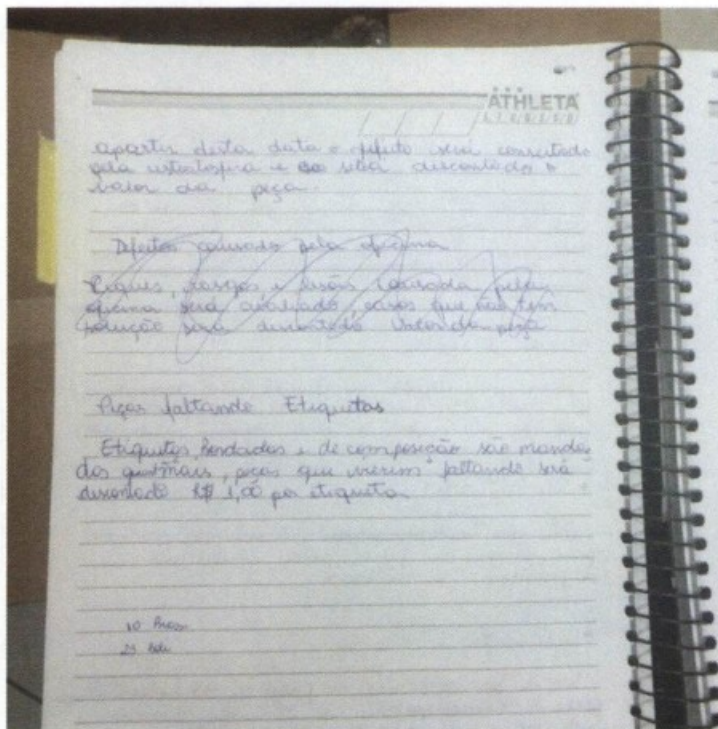 ATHLETA
apartir desta data o defeito será consertado
pela e será descontado o
valor da peça.
Defeitos causado pela oficina
Piques, rasgos e causada pela
oficina será avaliado, casos que não tem
solução será descontado valor da peça
Peças faltando Etiquetas
Etiquetas bordadas e de composição são manda
das peças que vierem faltando será
descontado R$ 1,00 por etiqueta
10
25